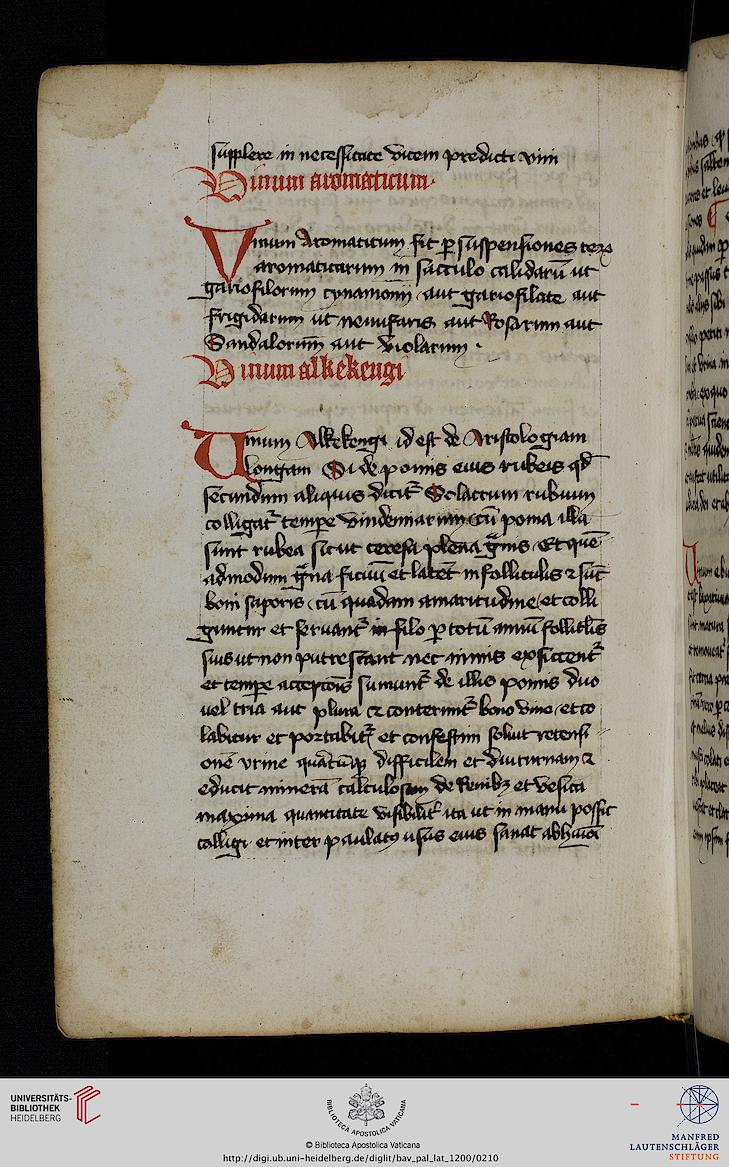 supplere in necessitate vicem predicti vini
Vinum aromaticum
Vinum Aromaticum fit p suspensiones
aromaticarum in sacculo calidarū ut
gariofilorum cynamomi aut gariofilate aut
frigidarum ut nenufaris aut Rosarum aut
Sandalorum aut violarum .
Vinum alkekengi
Uinum Alkekengi id est de Aristologiam
longam Si de pomis eius rubeis qđ
secundum aliquis dicit Solatrum rubium
colligat tempe vindemiarum cū poma illa
sunt rubea sicut ceresa plena gnis Et quē
admodum gna ficuū et latēt in folliculis
boni saporis cū quadam amaritudine et colli
guntur et servant in filo p totū annū
suis ut non putrescant nec nimis exsiccent
et tempe acceptiōis sumunt de illis pomis duo
uel tria aut plura et conterunt bono vino et co
labitur et portabit et confestim soluit retensi
onē vrine difficilem et diuturnam
educit minerā calculosam de Renibz et vesica
maxima quantitate visibilit ita ut in manu possit
colligi et inter usus eius sanat
UNIVERSITÄTS-
BIBLIOTHEK
HEIDELBERG
BIBLIOTECA APOSTOLICA VATICANA
© Biblioteca Apostolica Vaticana
http://digi.ub.uni-heidelberg.de/diglit/bav_pal_lat_1200/0210
MANFRED
LAUTENSCHLÄGER
STIFTUNG